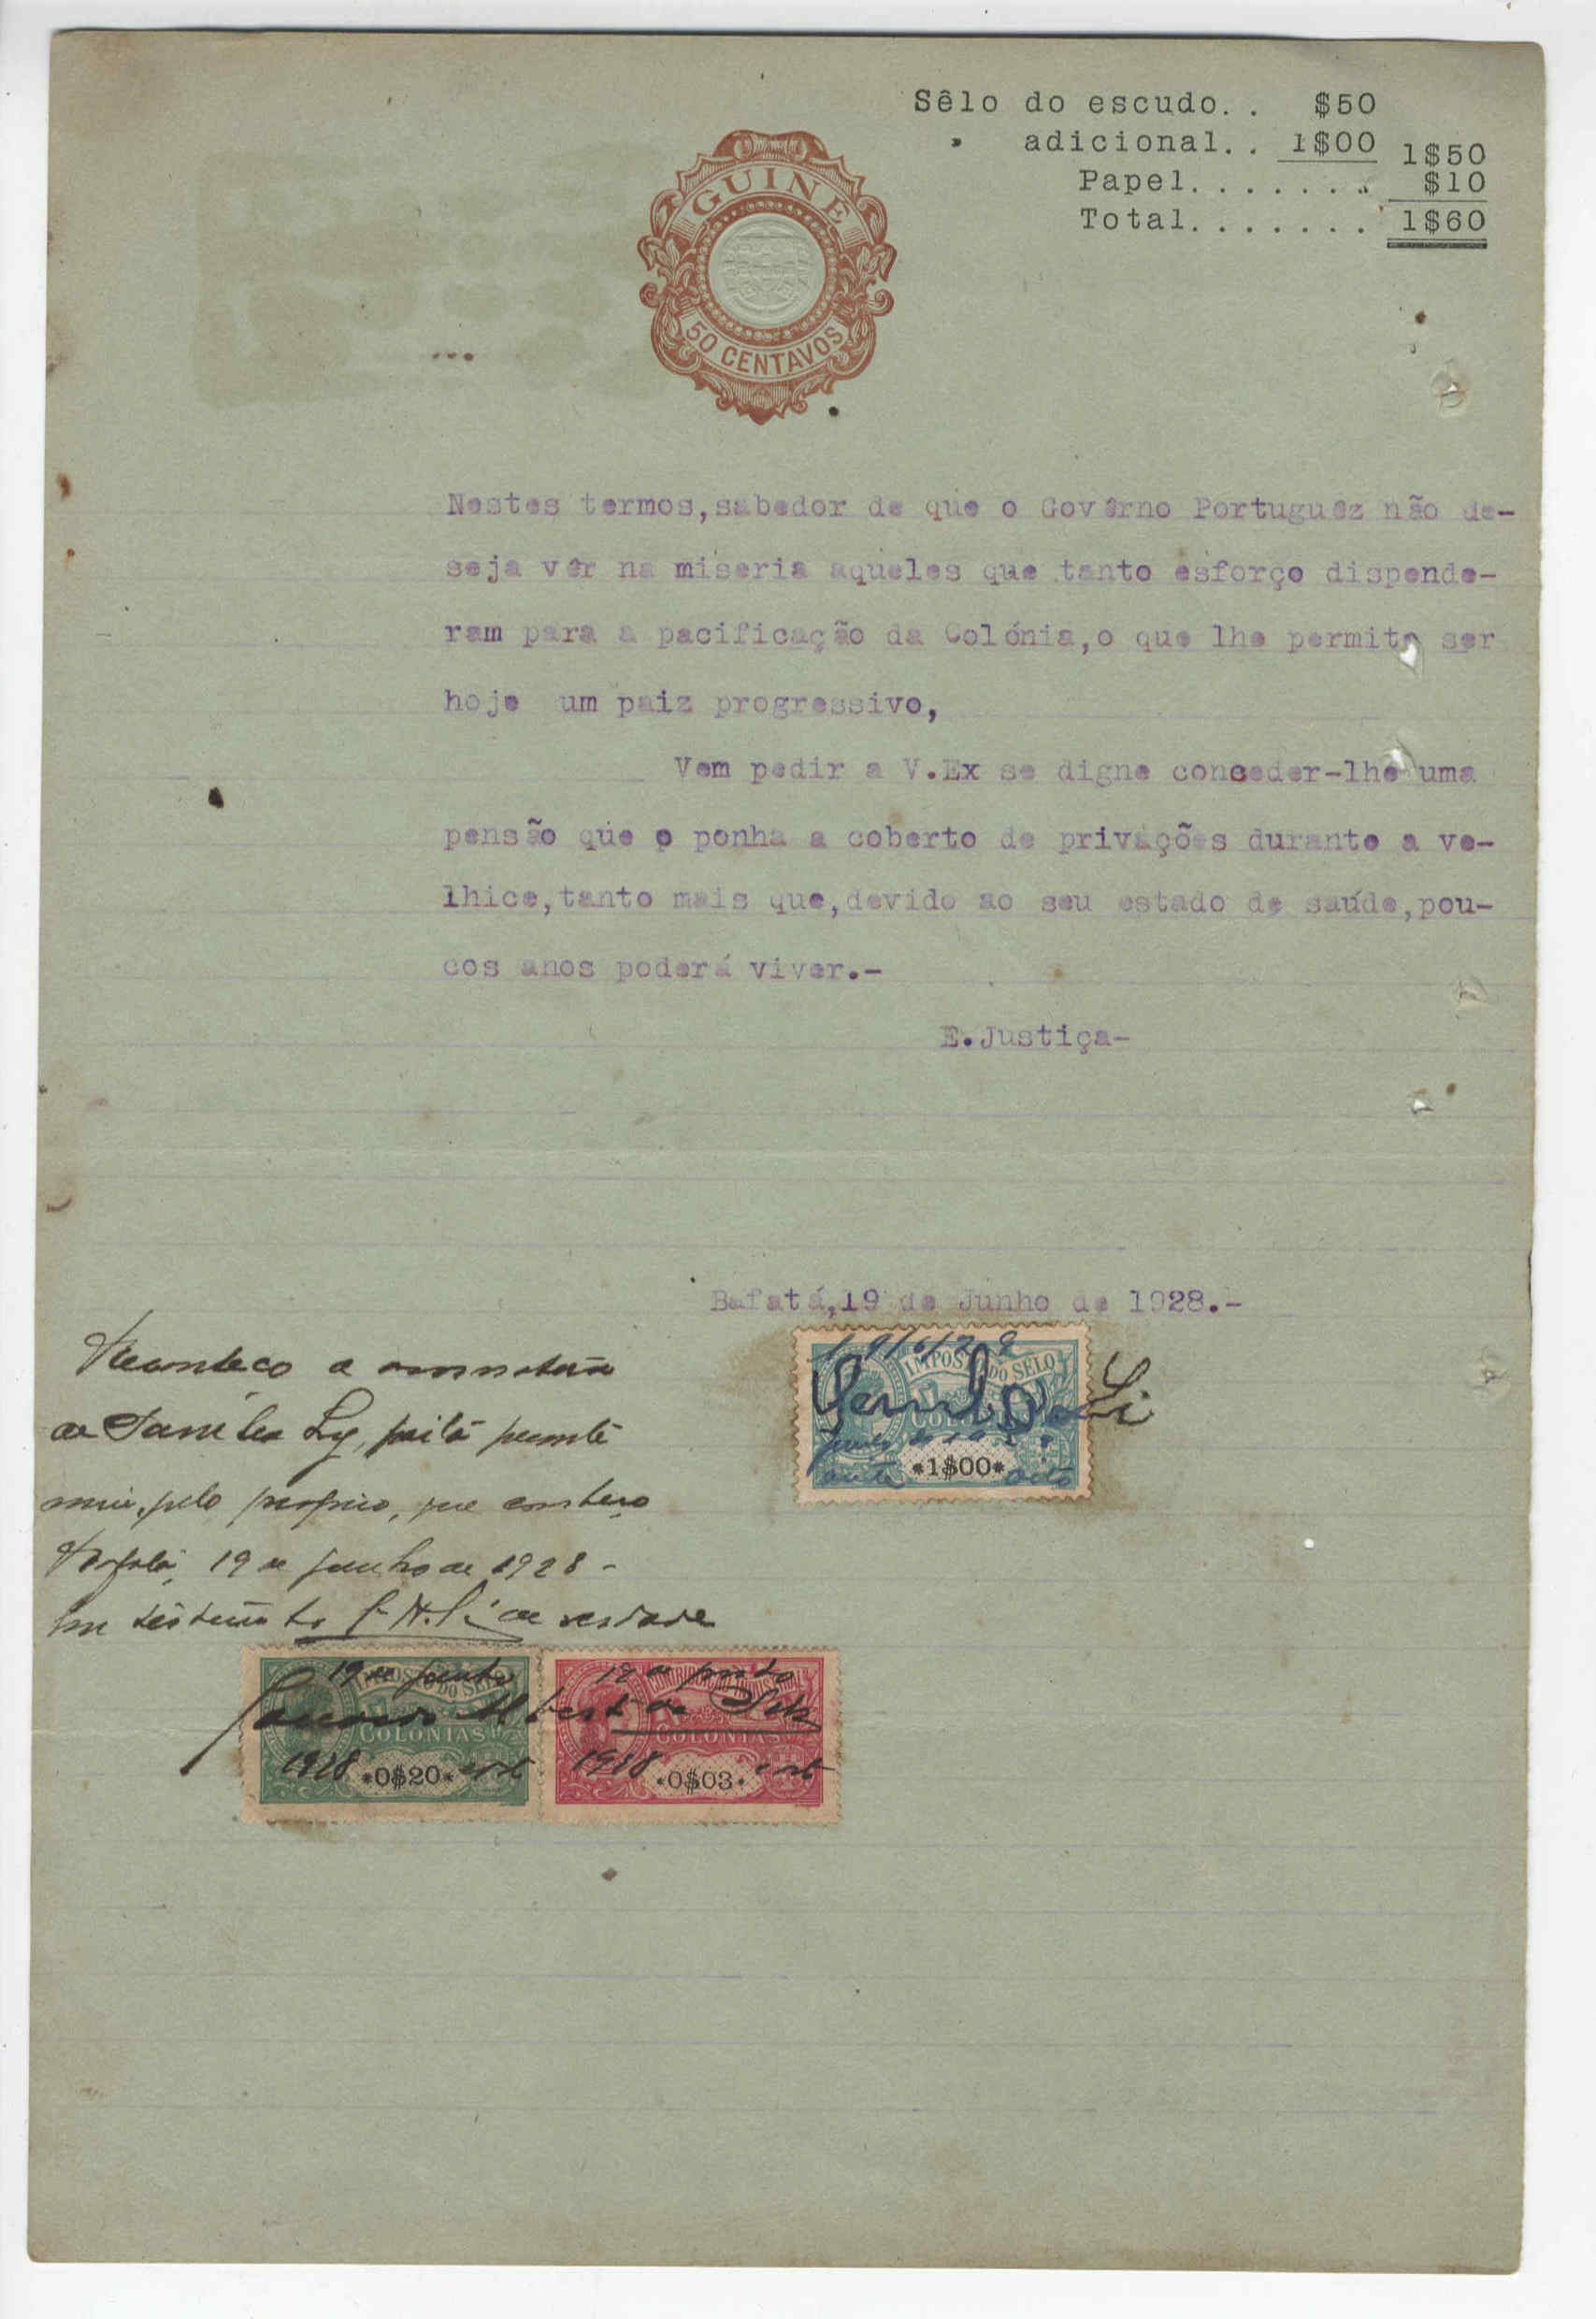 Sêlo do escudo.. $50
" adicional.. 1$00 1$50
Papel....... $10
Total....... 1$60
GUINE
50 CENTAVOS
Nestes termos,sabedor de que o Govêrno Portuguêz não de-
seja vêr na miseria aqueles que tanto esforço dispende-
ram para a pacificação da Colónia,o que lhe permite ser
hoje um paiz progressivo,
Vem pedir a V.Ex se digne conceder-lhe uma
pensão que o ponha a coberto de privações durante a ve-
lhice,tanto mais que,devido ao seu estado de saúde,pou-
cos anos poderá viver.-
E.Justiça-
Bafatá,19 de Junho de 1928.-
IMPOSTO DO SELO
*1$00*
Reconheço a assinatura
de Samba Ly, feita perante
mim, pelo proprio, que conheço
Bafatá, 19 de junho de 1928 -
Em testemunho de verdade
19 de junho
IMPOSTO DO SELO
COLONIAS
1928 *0$20*
19 de junho
CONTRIBUIÇÃO INDUSTRIAL
COLONIAS
1928 *0$03*